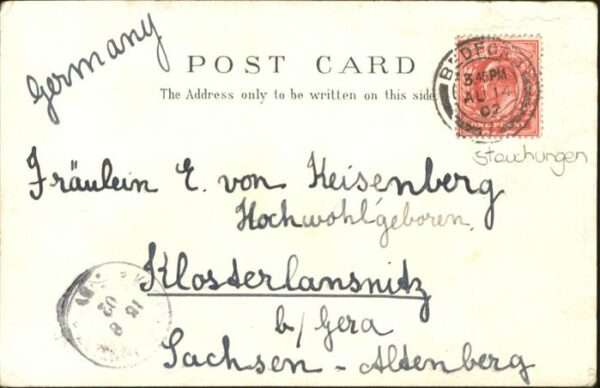 Germany
POST CARD
The Address only to be written on this side
BEDFORD
3.45PM
AU 14
02
ONE PENNY
Stauchungen
Fräulein E. von Heisenberg
Hochwohlgeboren.
Klosterlansnitz
b/ Gera
Sachsen - Altenberg
15
8
02